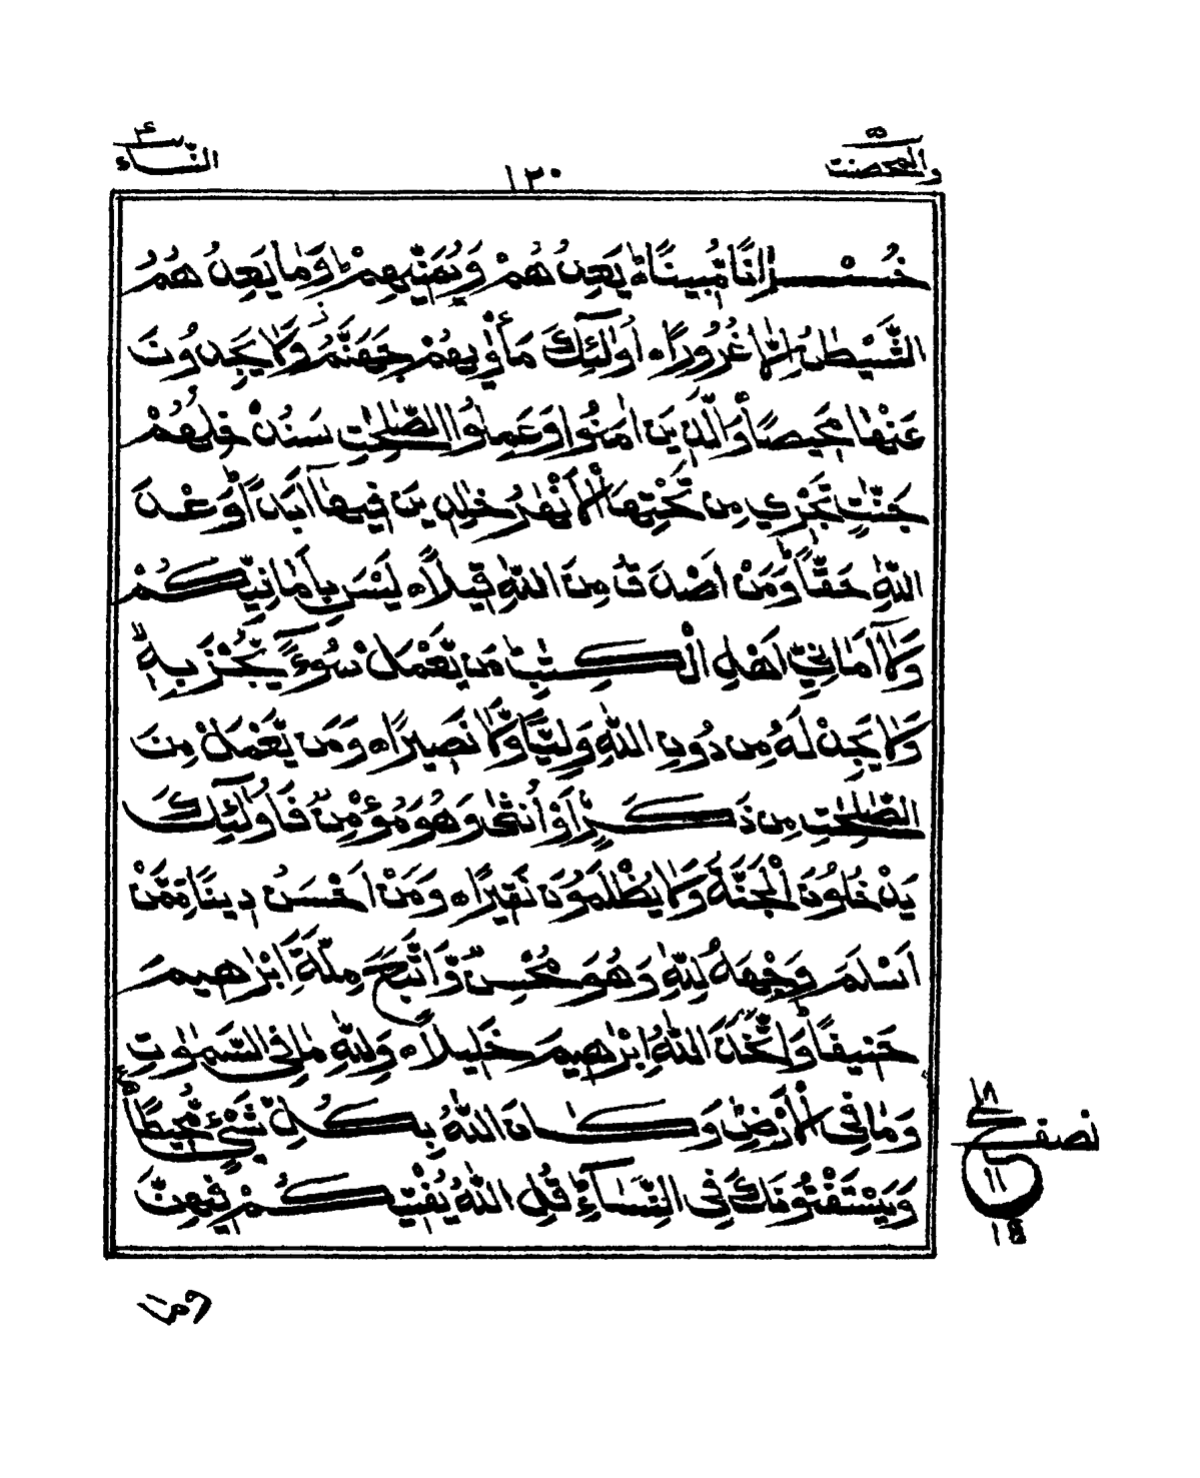 والمحصنت ٥
١٢٠
النساء ٤
خُسْرَانًا مُّبِينًا ۝ يَعِدُهُمْ وَيُمَنِّيهِمْ ؕ وَمَا يَعِدُهُمُ
الشَّيْطٰنُ اِلَّا غُرُورًا ۝ اُولٰٓئِكَ مَأْوٰىهُمْ جَهَنَّمُ ز وَلَا يَجِدُونَ
عَنْهَا مَحِيصًا ۝ وَالَّذِينَ اٰمَنُوا وَعَمِلُوا الصّٰلِحٰتِ سَنُدْخِلُهُمْ
جَنّٰتٍ تَجْرِي مِن تَحْتِهَا الْأَنْهٰرُ خٰلِدِينَ فِيهَآ اَبَدًا ؕ وَعْدَ
اللّٰهِ حَقًّا ؕ وَمَنْ اَصْدَقُ مِنَ اللّٰهِ قِيلًا ۝ لَيْسَ بِاَمَانِيِّكُمْ
وَلَآ اَمَانِيِّ اَهْلِ الْكِتٰبِ ؕ مَن يَّعْمَلْ سُوٓءًا يُّجْزَ بِهٖ ۙ
وَلَا يَجِدْ لَهُ مِن دُونِ اللّٰهِ وَلِيًّا وَّلَا نَصِيرًا ۝ وَمَن يَّعْمَلْ مِنَ
الصّٰلِحٰتِ مِن ذَكَرٍ اَوْ اُنثٰى وَهُوَ مُؤْمِنٌ فَاُولٰٓئِكَ
يَدْخُلُونَ الْجَنَّةَ وَلَا يُظْلَمُونَ نَقِيرًا ۝ وَمَنْ اَحْسَنُ دِينًا مِّمَّنْ
اَسْلَمَ وَجْهَهُ لِلّٰهِ وَهُوَ مُحْسِنٌ وَّاتَّبَعَ مِلَّةَ اِبْرٰهِيمَ
حَنِيفًا ؕ وَاتَّخَذَ اللّٰهُ اِبْرٰهِيمَ خَلِيلًا ۝ وَلِلّٰهِ مَا فِي السَّمٰوٰتِ
وَمَا فِي الْأَرْضِ ؕ وَكَانَ اللّٰهُ بِكُلِّ شَيْءٍ مُّحِيطًا ۝
وَيَسْتَفْتُونَكَ فِي النِّسَآءِ ؕ قُلِ اللّٰهُ يُفْتِيكُمْ فِيهِنَّ
نصف
١٨
ع
١١
١٥